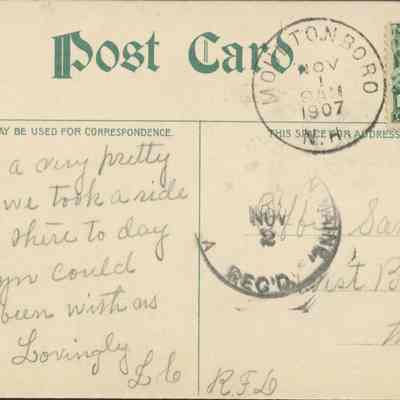 Post Card
MOULTONBORO
NOV
1
9AM
1907
N.H.
MAY BE USED FOR CORRESPONDENCE.
THIS SPACE FOR ADDRESS
a very pretty
we took a ride
there to day
could
been with us
Lovingly
NOV
2
REC'D.
R.F.D